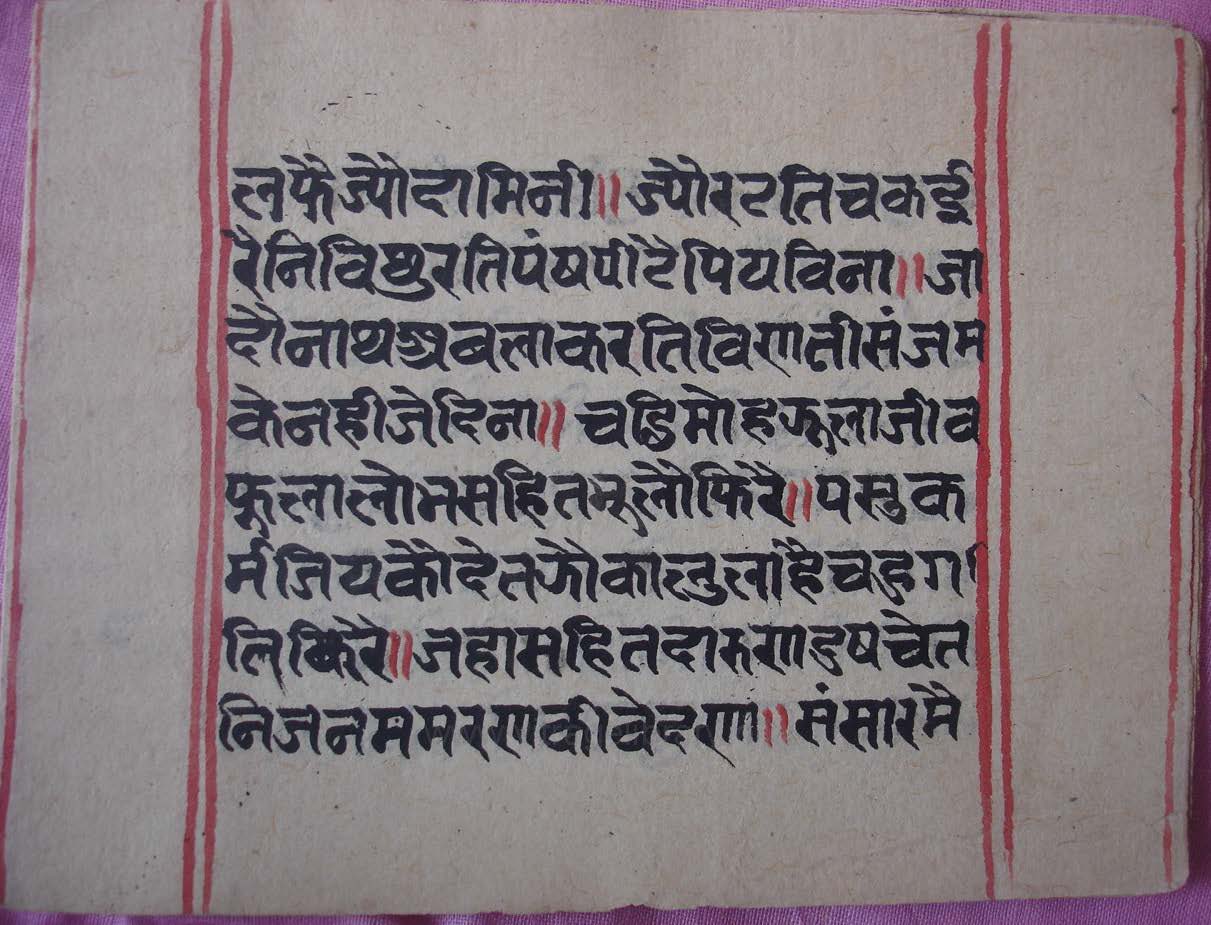 लफैज्यौदामिनी॥ ज्यौरटतिचकई
रैनिविछुरतिपंषपीटैपियविना॥ जा
दौनाथअबलाकरतिविणतीसंजम
केनहीजेदिना॥ चडिमोहझूलाजीव
फूलालोभसहितभूलौफिरै॥ पसुक
र्मजियकौदेतझौकालुलाहैचहुग
तिकिरै॥ जहासहितदारुणदुषचेत
निजनममरणकीवेदणा॥ संसारमै